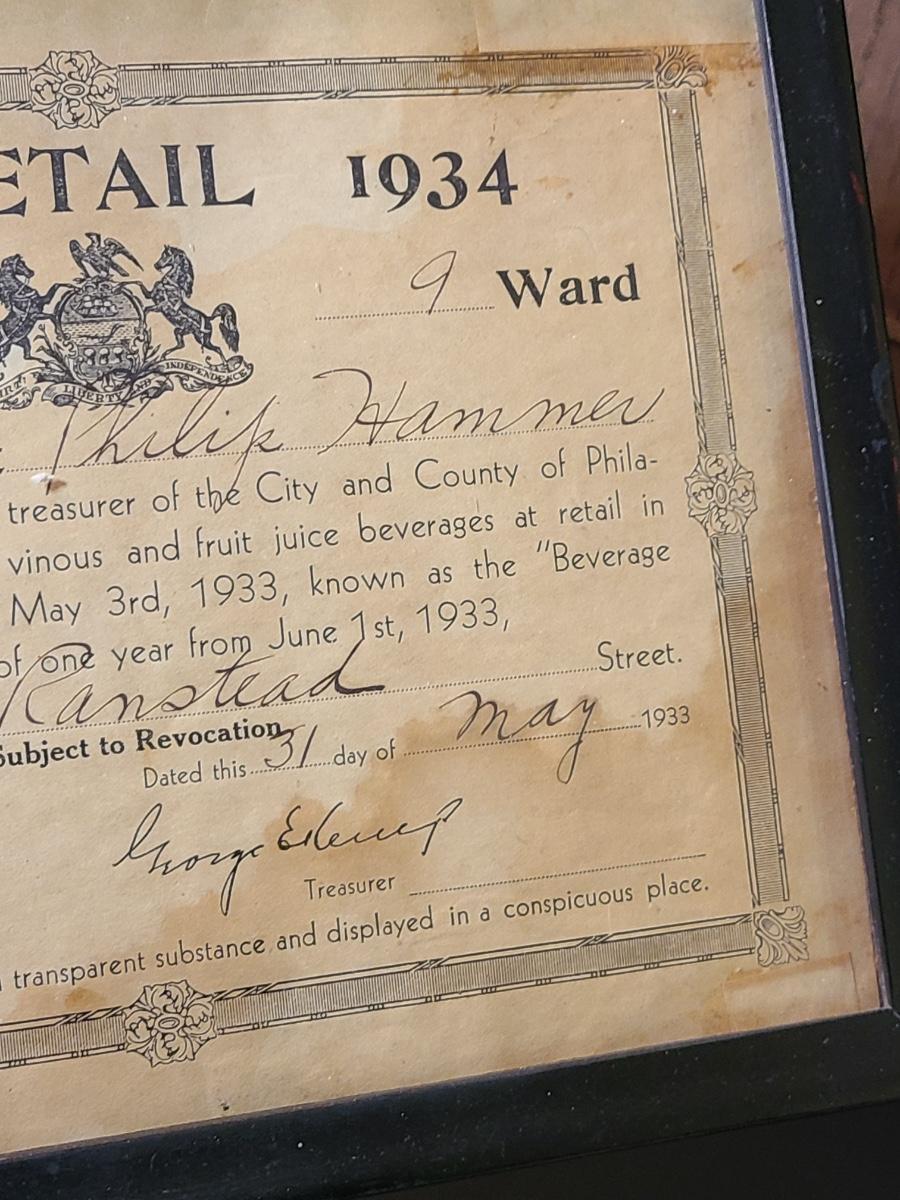 ETAIL 1934
9 Ward
LIBERTY AND INDEPENDENCE
Philip Hammer
treasurer of the City and County of Phila-
vinous and fruit juice beverages at retail in
May 3rd, 1933, known as the "Beverage
of one year from June 1st, 1933,
Ranstead Street.
Subject to Revocation
Dated this 31 day of May 1933
George
Treasurer
transparent substance and displayed in a conspicuous place.